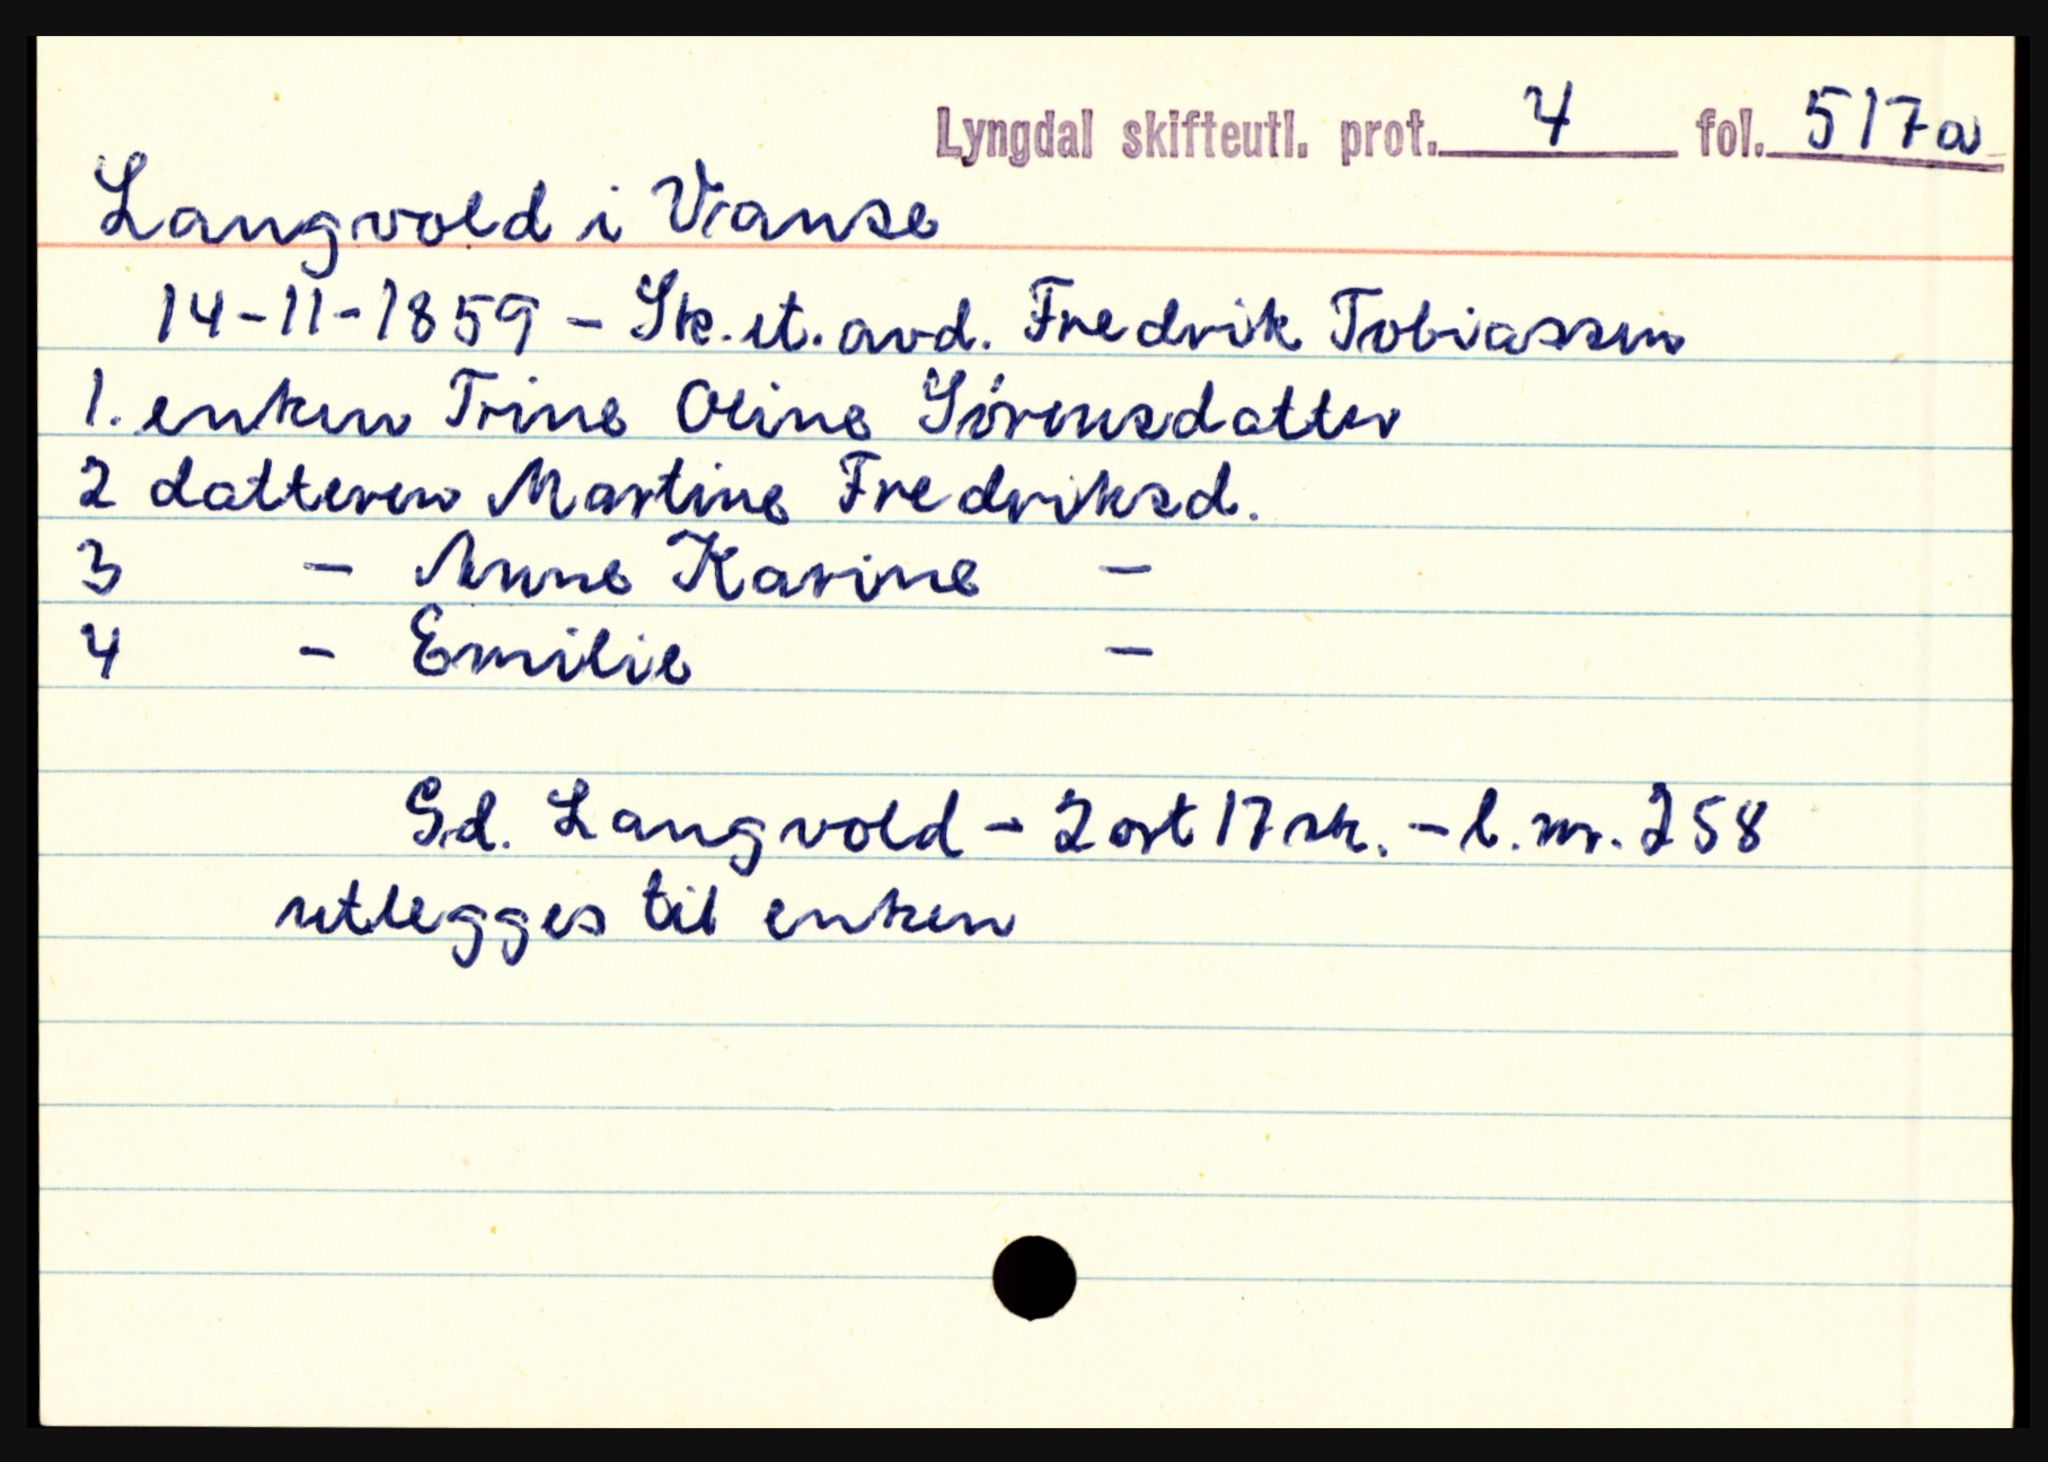 Lyngdal skifteutl. prot. 4 fol. 517a
Langvold i Vanse
14-11-1859 - Sk.et.avd. Fredrik Tobiassen
1. enken Trine Oline Sørensdatter
2 datteren Martine Fredriksd.
3 - Anne Karine -
4 - Emilie -
Gd. Langvold - 2 ort 17 sk. - l.nr. 258
utlegges til enken